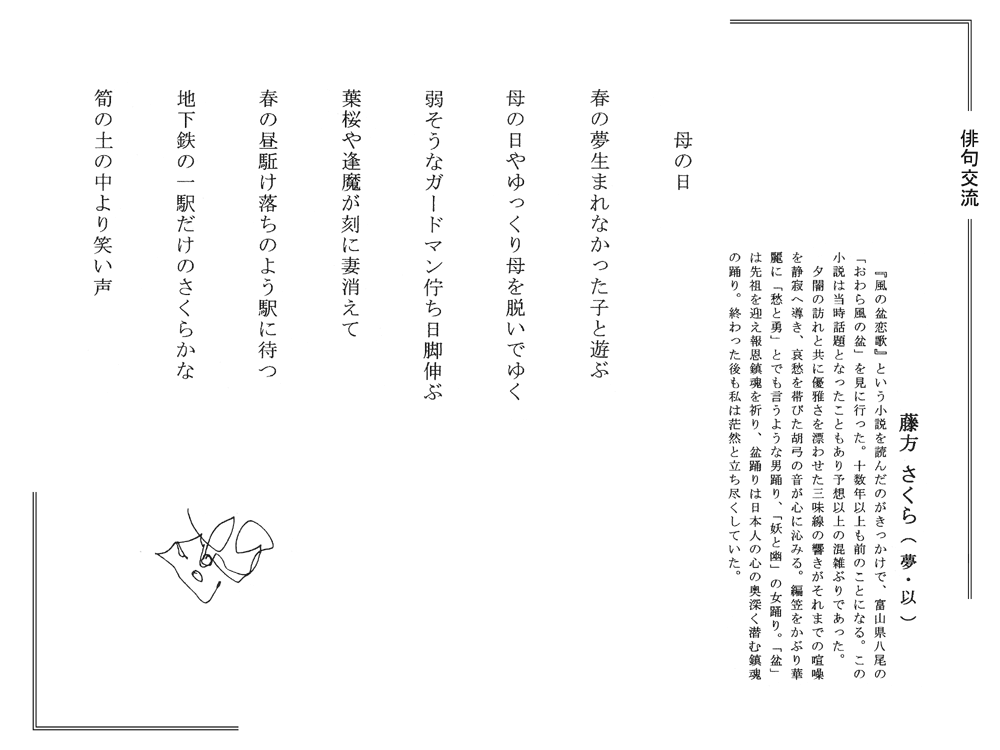 俳句交流
藤方 さくら（夢・以）
『風の盆恋歌』という小説を読んだのがきっかけで、富山県八尾の
「おわら風の盆」を見に行った。十数年以上も前のことになる。この
小説は当時話題となったこともあり予想以上の混雑ぶりであった。
夕闇の訪れと共に優雅さを漂わせた三味線の響きがそれまでの喧噪
を静寂へ導き、哀愁を帯びた胡弓の音が心に沁みる。編笠をかぶり華
麗に「愁と勇」とでも言うような男踊り、「妖と幽」の女踊り。「盆」
は先祖を迎え報恩鎮魂を祈り、盆踊りは日本人の心の奥深く潜む鎮魂
の踊り。終わった後も私は茫然と立ち尽くしていた。
母の日
春の夢生まれなかった子と遊ぶ
母の日やゆっくり母を脱いでゆく
弱そうなガードマン佇ち日脚伸ぶ
葉桜や逢魔が刻に妻消えて
春の昼駈け落ちのよう駅に待つ
地下鉄の一駅だけのさくらかな
筍の土の中より笑い声